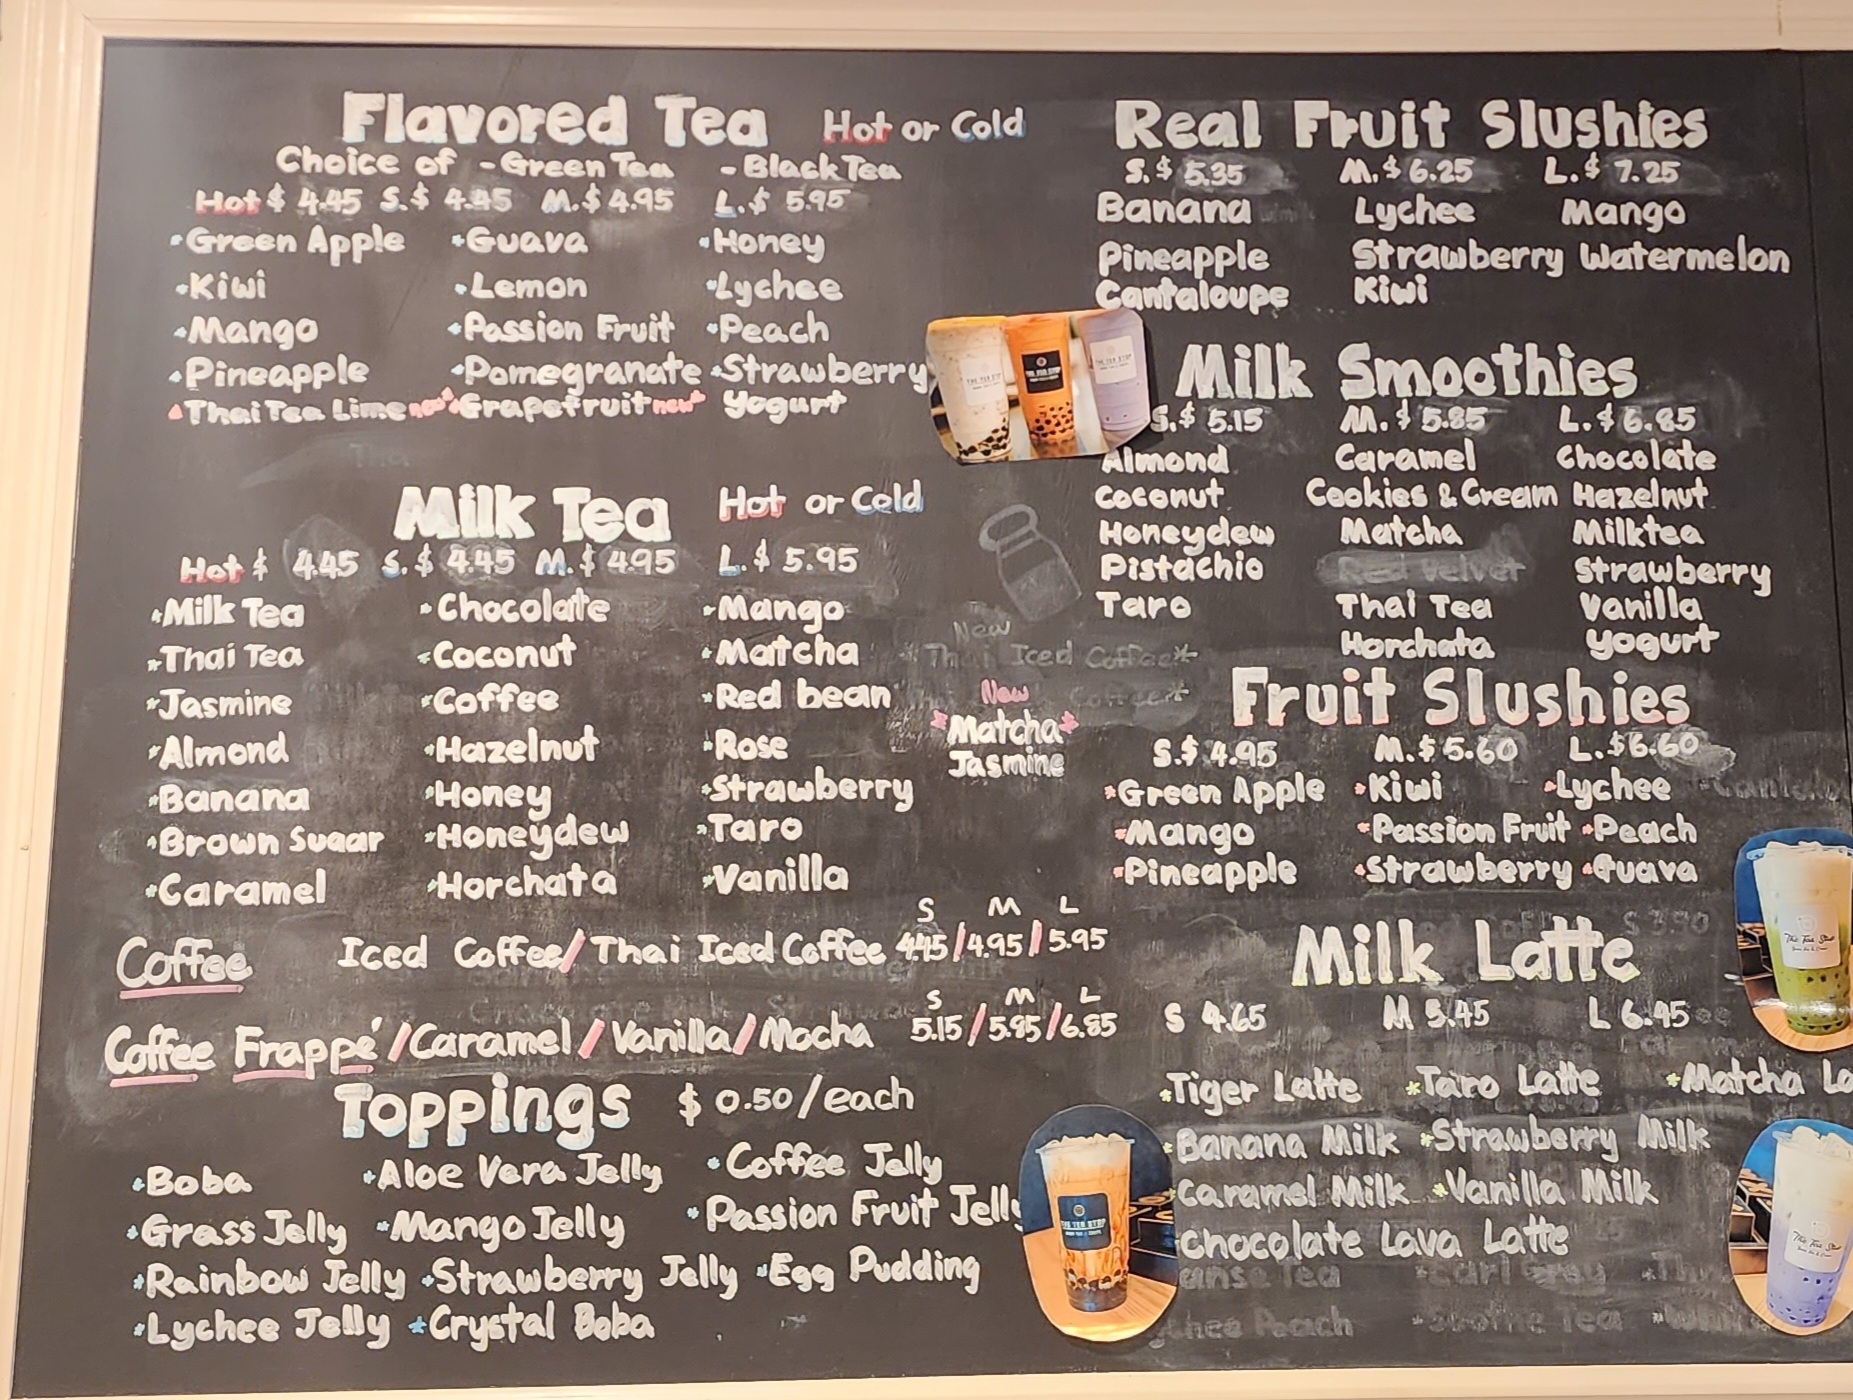 Flavored Tea Hot or Cold
Choice of - Green Tea - Black Tea
Hot $ 4.45 S. $ 4.45 M. $ 4.95 L. $ 5.95
Green Apple Guava Honey
Kiwi Lemon Lychee
Mango Passion Fruit Peach
Pineapple Pomegranate Strawberry
Thai Tea Lime new Grapefruit new Yogurt
Milk Tea Hot or Cold
Hot $ 4.45 S. $ 4.45 M. $ 4.95 L. $ 5.95
Milk Tea Chocolate Mango
Thai Tea Coconut Matcha
Jasmine Coffee Red bean
Almond Hazelnut Rose
Banana Honey Strawberry
Brown Sugar Honeydew Taro
Caramel Horchata Vanilla
New
*Thai Iced Coffee*
New
*Matcha*
Jasmine
S M L
Coffee Iced Coffee/Thai Iced Coffee 4.45/4.95/5.95
S M L
Coffee Frappé/Caramel/Vanilla/Mocha 5.15/5.85/6.85
Toppings $ 0.50/each
Boba Aloe Vera Jelly Coffee Jelly
Grass Jelly Mango Jelly Passion Fruit Jelly
Rainbow Jelly Strawberry Jelly Egg Pudding
Lychee Jelly Crystal Boba
Real Fruit Slushies
S. $ 5.35 M. $ 6.25 L. $ 7.25
Banana Lychee Mango
Pineapple Strawberry Watermelon
Cantaloupe Kiwi
THE TEA STOP
THE TEA STOP
THE TEA STOP
Milk Smoothies
S. $ 5.15 M. $ 5.85 L. $ 6.85
Almond Caramel Chocolate
Coconut Cookies & Cream Hazelnut
Honeydew Matcha Milktea
Pistachio Red Velvet Strawberry
Taro Thai Tea Vanilla
Horchata Yogurt
Fruit Slushies
S. $ 4.95 M. $ 5.60 L. $6.60
Green Apple Kiwi Lychee
Mango Passion Fruit Peach
Pineapple Strawberry Guava
Milk Latte
S 4.65 M 5.45 L 6.45
Tiger Latte *Taro Latte *Matcha La
Banana Milk Strawberry Milk
Caramel Milk Vanilla Milk
Chocolate Lava Latte
Earl Grey
Peach Soothe Tea
The Tea Stop
THE TEA STOP
The Tea Stop